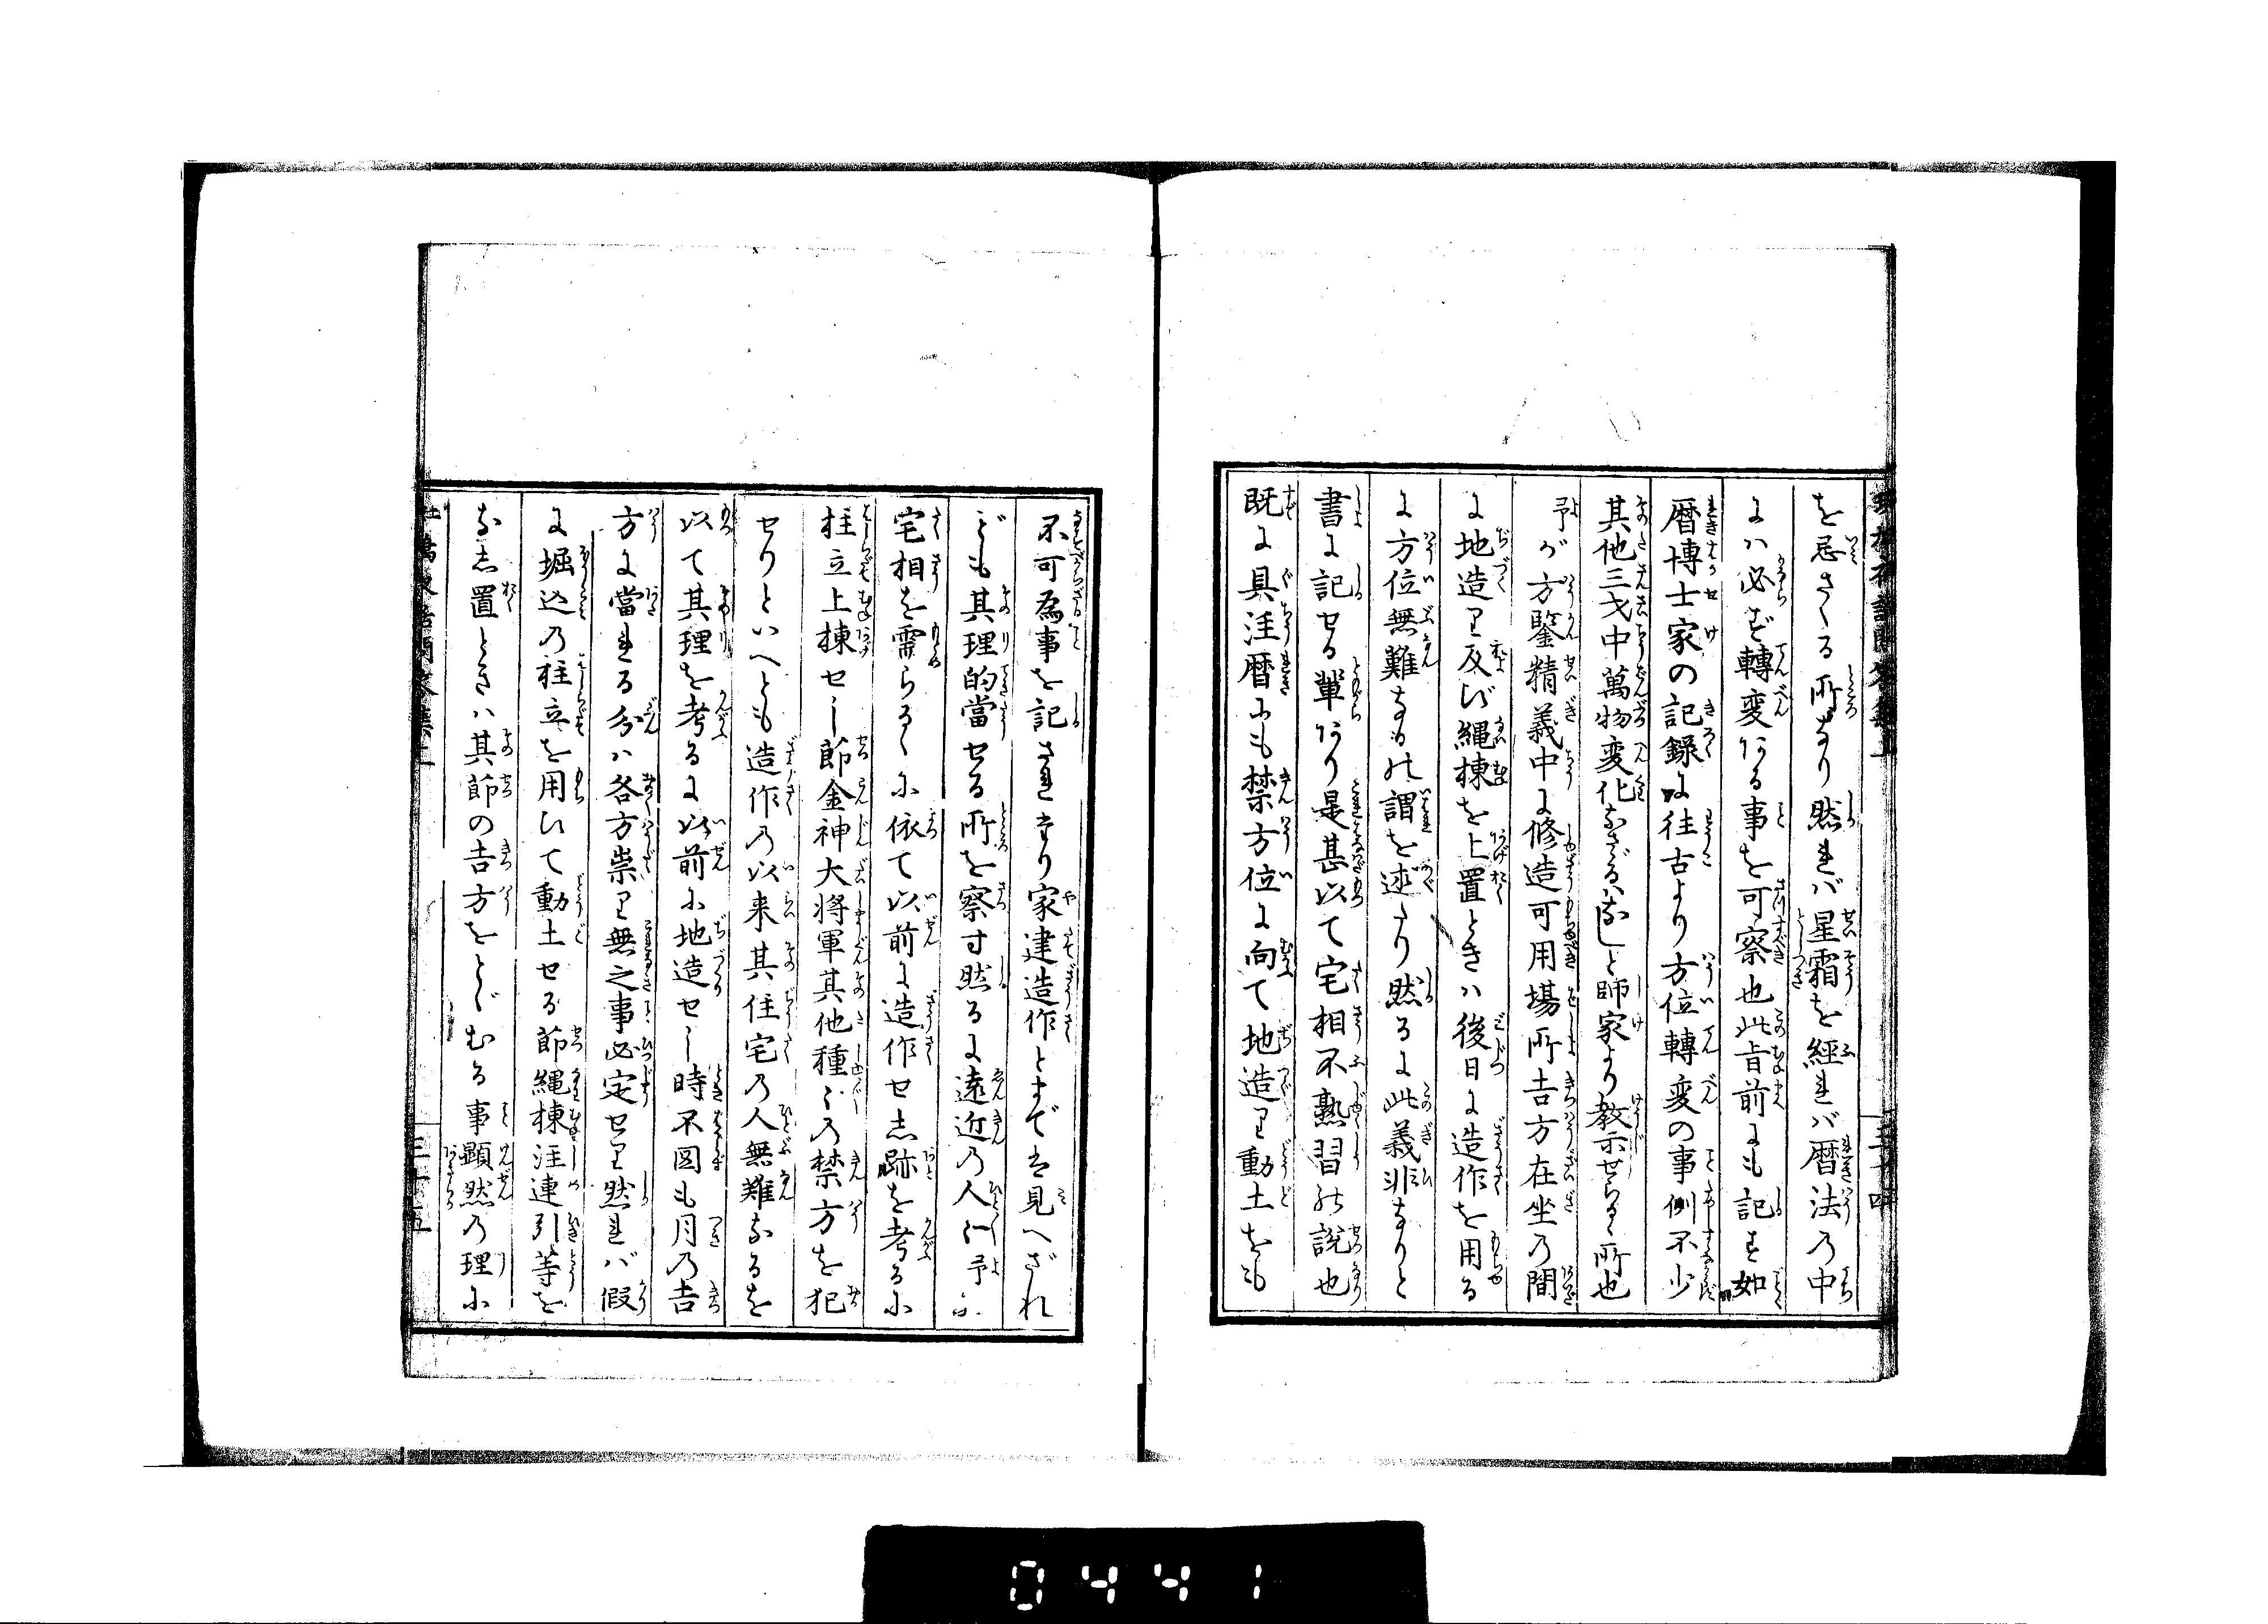 を忌さくる所なり然れバ星霜を経れバ暦法乃中
にハ必ず轉変ある事を可察也此旨前にも記す如
暦博士家の記録に往古より方位轉変の事例不少
其他三才中萬物変化なさゞるハなしと師家より教示せらるゝ所也
予が方鑒精義中に修造可用場所吉方在坐乃間
に地造り及び縄棟を上置ときハ後日に造作を用る
に方位無難なるの謂を述たり然るに此義非なりと
書に記せる輩あり是甚以て宅相不熟習の説也
既に具注暦にも禁方位に向て地造り動土をも
不可為事を記されたり家建造作とまでは見へざれ
ども其理的當せる所を察す然るに遠近乃人々予に
宅相を需らるゝに依て以前に造作せし跡を考るに
柱立上棟せし節金神大将軍其他種々乃禁方を犯
せりといへども造作乃以来其住宅乃人無難なるを
以て其理を考るに以前に地造せし時不図も月乃吉
方に當れる分ハ各方祟り無之事必定せり然れバ假
に堀込乃柱立を用ひて動土せる節縄棟注連引等を
なし置ときハ其節の吉方をとゞむる事顕然乃理に
三十五
0441